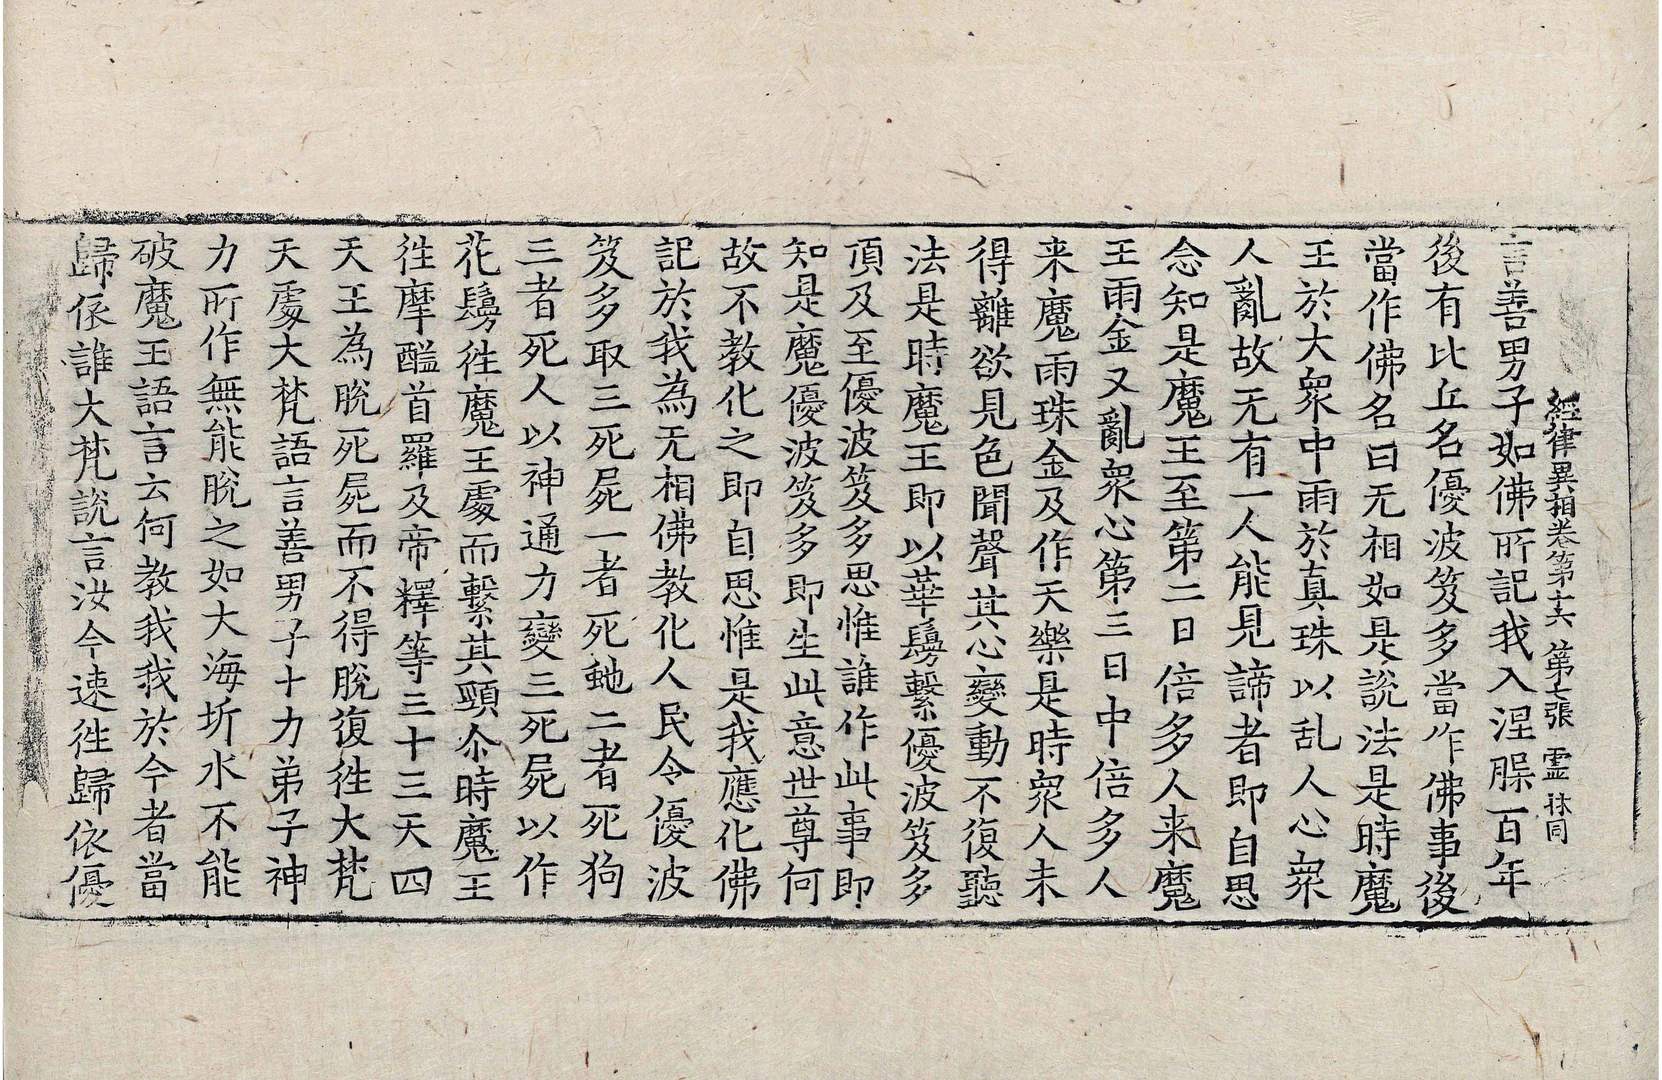 經律異相卷第十六 第七張 霊
言善男子如佛所記我入涅槃百年
後有比丘名優波笈多當作佛事後
當作佛名曰无相如是說法是時魔
王於大衆中雨於真珠以乱人心衆
人亂故无有一人能見諦者即自思
念知是魔王至第二日倍多人来魔
王雨金又亂衆心第三日中倍多人
来魔雨珠金及作天樂是時衆人未
得離欲見色聞聲其心變動不復聽
法是時魔王即以華鬘繫優波笈多
頂及至優波笈多思惟誰作此事即
知是魔優波笈多即生此意世尊何
故不教化之即自思惟是我應化佛
記於我為无相佛教化人民令優波
笈多取三死屍一者死虵二者死狗
三者死人以神通力變三死屍以作
花鬘徃魔王處而繫其頸尒時魔王
徃摩醯首羅及帝釋等三十三天四
天王為脫死屍而不得脫復徃大梵
天處大梵語言善男子十力弟子神
力所作無能脫之如大海圻水不能
破魔王語言云何教我我於今者當
歸依誰大梵說言汝今速徃歸依優